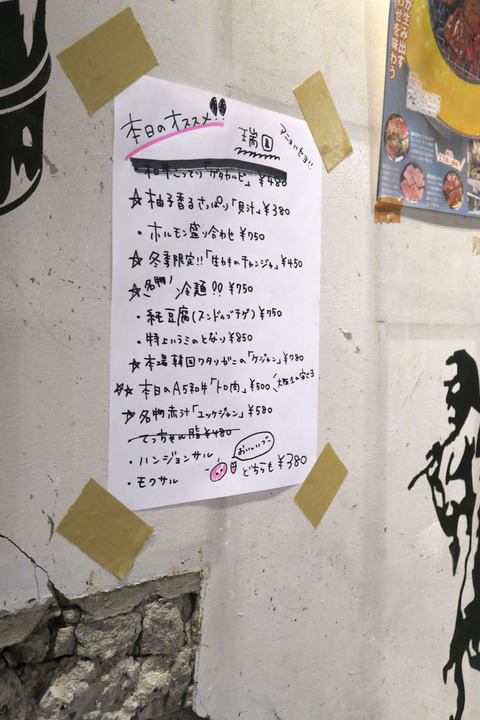 本日のオススメ!!
瑞固
アニョハセヨ!!
ゲタカルビ」 ¥480
☆ 柚子香るさっぱり「貝汁」¥380
・ホルモン盛り合わせ ¥750
☆ 冬季限定!!「生カキのチャンジャ」¥450
☆ 名物! 冷麺!! ¥750
・純豆腐(スンドゥブチゲ) ¥750
・特上ハラミのとなり ¥850
☆ 本場韓国ワタリガニの「ケジャン」¥780
☆☆ 本日のA5和牛「トロ肉」¥500
☆ 名物赤汁「ユッケジャン」¥580
てっちゃん脂 ¥480
・ハンジョンサル
・モクサル
おいしいブー
どちらも ¥380
が生み出す
わせを味わう